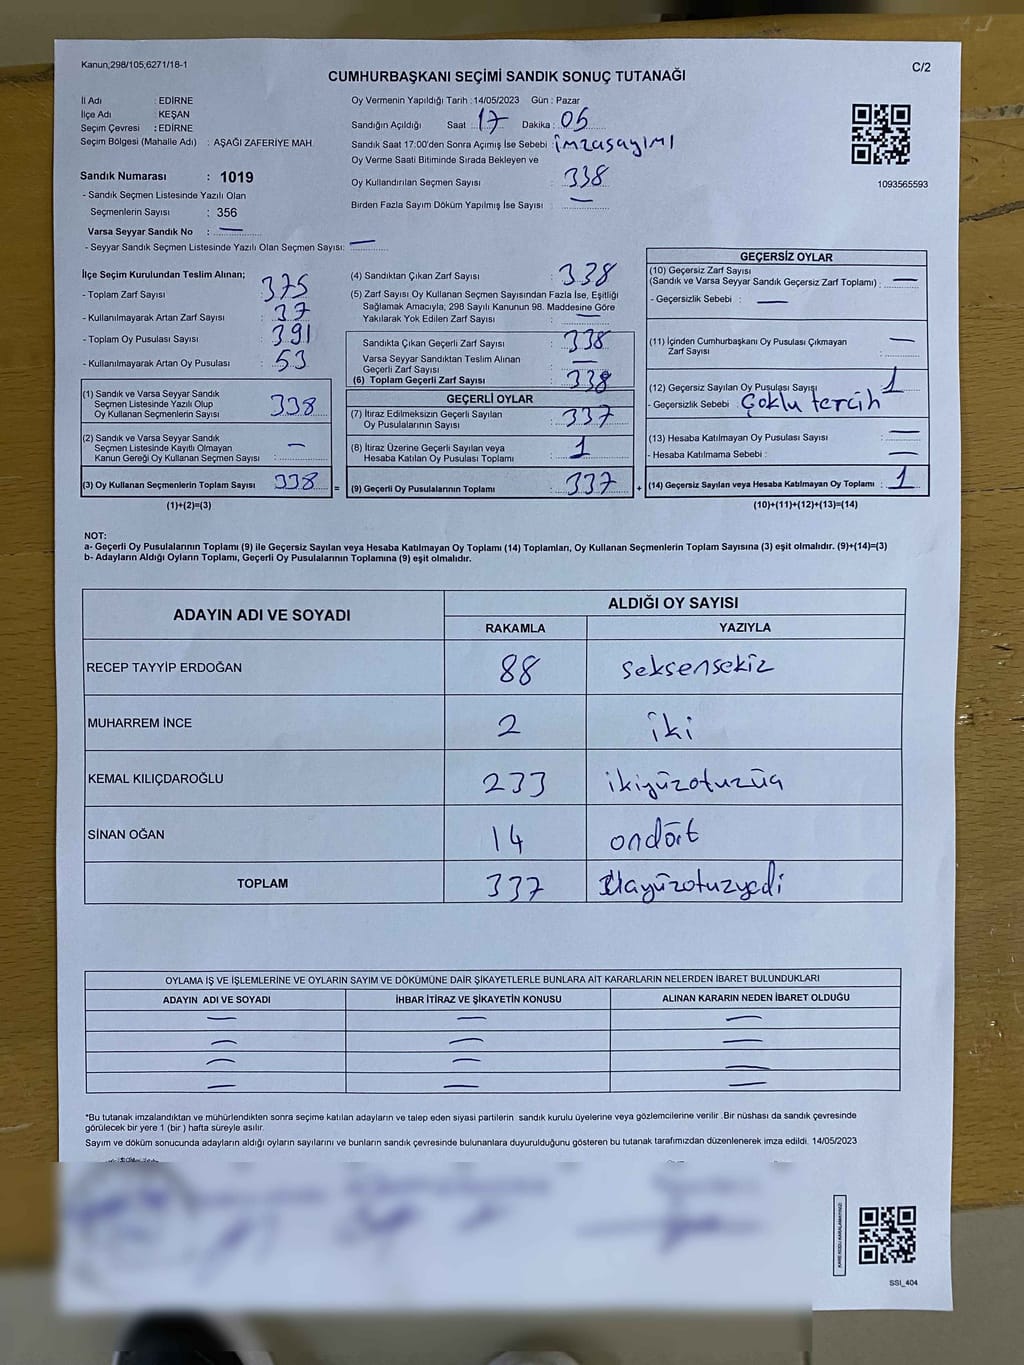 Kanun,298/105,6271/18-1
C/2
CUMHURBAŞKANI SEÇİMİ SANDIK SONUÇ TUTANAĞI
İl Adı : EDİRNE
İlçe Adı : KEŞAN
Seçim Çevresi : EDİRNE
Seçim Bölgesi (Mahalle Adı) : AŞAĞI ZAFERİYE MAH.
Sandık Numarası : 1019
- Sandık Seçmen Listesinde Yazılı Olan
Seçmenlerin Sayısı : 356
Varsa Seyyar Sandık No : —
- Seyyar Sandık Seçmen Listesinde Yazılı Olan Seçmen Sayısı: —
Oy Vermenin Yapıldığı Tarih : 14/05/2023 Gün : Pazar
Sandığın Açıldığı Saat : 17 Dakika : 05
Sandık Saat 17:00'den Sonra Açımış İse Sebebi : imzasayımı
Oy Verme Saati Bitiminde Sırada Bekleyen ve
Oy Kullandırılan Seçmen Sayısı : 338
Birden Fazla Sayım Döküm Yapılmış İse Sayısı : —
1093565593
İlçe Seçim Kurulundan Teslim Alınan;
- Toplam Zarf Sayısı : 375
- Kullanılmayarak Artan Zarf Sayısı : 37
- Toplam Oy Pusulası Sayısı : 391
- Kullanılmayarak Artan Oy Pusulası : 53
(1) Sandık ve Varsa Seyyar Sandık
Seçmen Listesinde Yazılı Olup
Oy Kullanan Seçmenlerin Sayısı : 338
(2) Sandık ve Varsa Seyyar Sandık
Seçmen Listesinde Kayıtlı Olmayan
Kanun Gereği Oy Kullanan Seçmen Sayısı : —
(3) Oy Kullanan Seçmenlerin Toplam Sayısı : 338 =
(1)+(2)=(3)
(4) Sandıktan Çıkan Zarf Sayısı : 338
(5) Zarf Sayısı Oy Kullanan Seçmen Sayısından Fazla İse, Eşitliği
Sağlamak Amacıyla; 298 Sayılı Kanunun 98. Maddesine Göre
Yakılarak Yok Edilen Zarf Sayısı : —
Sandıkta Çıkan Geçerli Zarf Sayısı : 338
Varsa Seyyar Sandıktan Teslim Alınan
Geçerli Zarf Sayısı : —
(6) Toplam Geçerli Zarf Sayısı : 338
GEÇERLİ OYLAR
(7) İtiraz Edilmeksizin Geçerli Sayılan
Oy Pusulalarının Sayısı : 337
(8) İtiraz Üzerine Geçerli Sayılan veya
Hesaba Katılan Oy Pusulası Toplamı : 1
(9) Geçerli Oy Pusulalarının Toplamı : 337 +
GEÇERSİZ OYLAR
(10) Geçersiz Zarf Sayısı
(Sandık ve Varsa Seyyar Sandık Geçersiz Zarf Toplamı) : —
- Geçersizlik Sebebi : —
(11) İçinden Cumhurbaşkanı Oy Pusulası Çıkmayan
Zarf Sayısı : —
(12) Geçersiz Sayılan Oy Pusulası Sayısı : 1
- Geçersizlik Sebebi : Çoklu tercih
(13) Hesaba Katılmayan Oy Pusulası Sayısı : —
- Hesaba Katılmama Sebebi : —
(14) Geçersiz Sayılan veya Hesaba Katılmayan Oy Toplamı : 1
(10)+(11)+(12)+(13)=(14)
NOT:
a- Geçerli Oy Pusulalarının Toplamı (9) ile Geçersiz Sayılan veya Hesaba Katılmayan Oy Toplamı (14) Toplamları, Oy Kullanan Seçmenlerin Toplam Sayısına (3) eşit olmalıdır. (9)+(14)=(3)
b- Adayların Aldığı Oyların Toplamı, Geçerli Oy Pusulalarının Toplamına (9) eşit olmalıdır.
ADAYIN ADI VE SOYADI
ALDIĞI OY SAYISI
RAKAMLA YAZIYLA
RECEP TAYYİP ERDOĞAN 88 seksensekiz
MUHARREM İNCE 2 iki
KEMAL KILIÇDAROĞLU 233 ikiyüzotuzüç
SİNAN OĞAN 14 ondört
TOPLAM 337 üçyüzotuzyedi
OYLAMA İŞ VE İŞLEMLERİNE VE OYLARIN SAYIM VE DÖKÜMÜNE DAİR ŞİKAYETLERLE BUNLARA AİT KARARLARIN NELERDEN İBARET BULUNDUKLARI
ADAYIN ADI VE SOYADI İHBAR İTİRAZ VE ŞİKAYETİN KONUSU ALINAN KARARIN NEDEN İBARET OLDUĞU
— — —
— — —
— — —
— — —
*Bu tutanak imzalandıktan ve mühürlendikten sonra seçime katılan adayların ve talep eden siyasi partilerin sandık kurulu üyelerine veya gözlemcilerine verilir .Bir nüshası da sandık çevresinde
görülecek bir yere 1 (bir ) hafta süreyle asılır.
Sayım ve döküm sonucunda adayların aldığı oyların sayılarını ve bunların sandık çevresinde bulunanlara duyurulduğunu gösteren bu tutanak tarafımızdan düzenlenerek imza edildi. 14/05/2023
KARE KODU KARALAMAYINIZ!
SSI_404